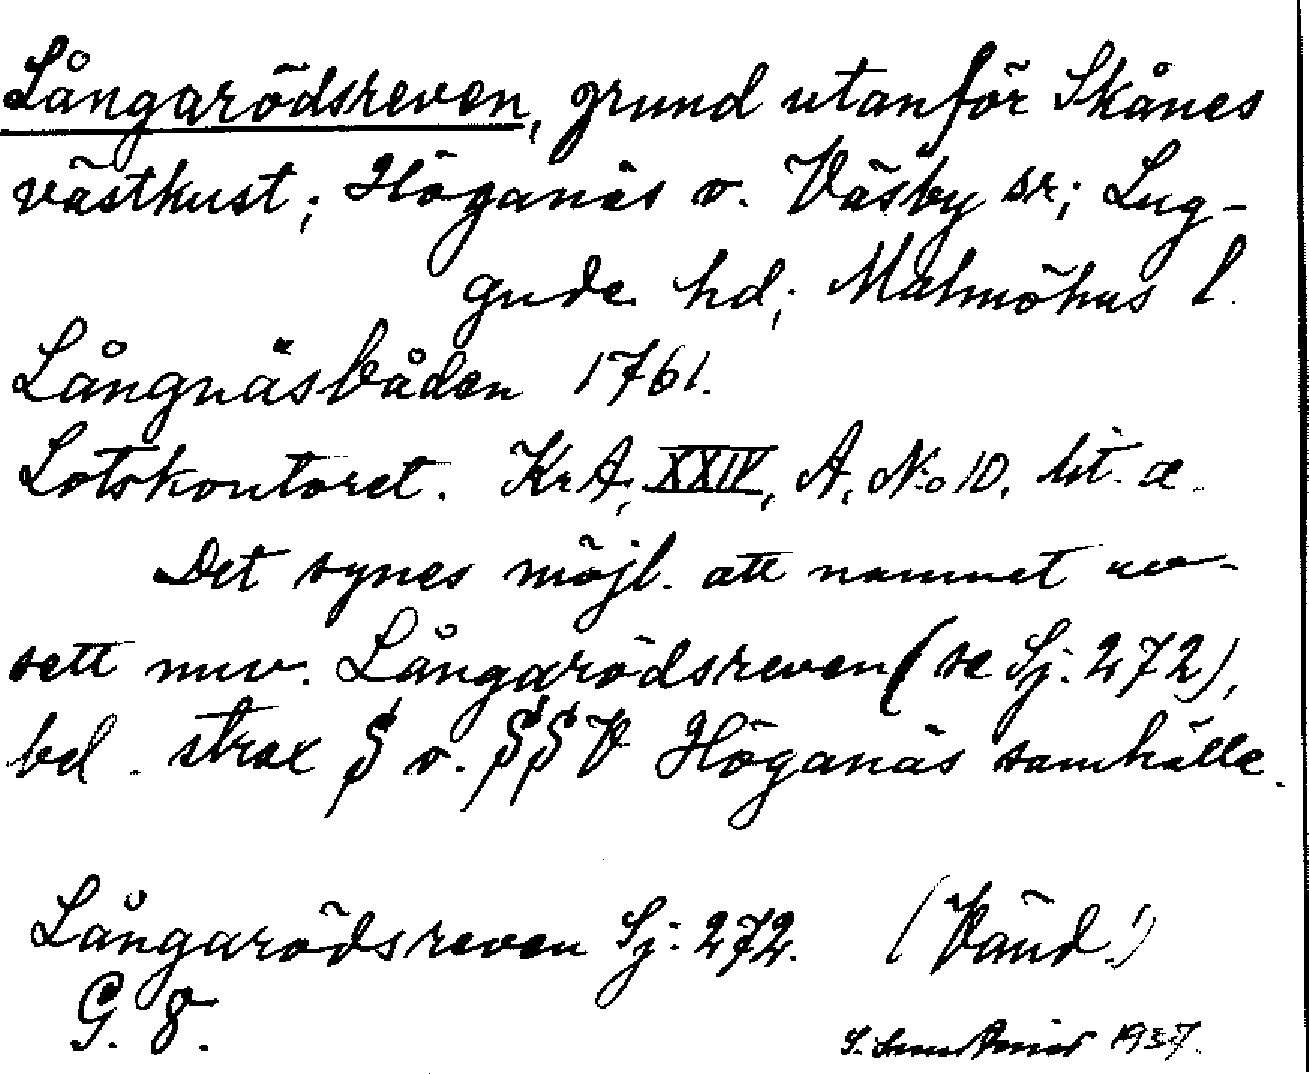 Långarödsreven, grund utanför Skånes
västkust; Höganäs o. Väsby sn; Lug-
gude hd; Malmöhus l.
Långnäsbåden 1761.
Lotskontoret. KrA, XXIV, A, No 10, lit. æ.
Det synes möjl. att namnet av-
sett nuv. Långarödsreven (se Sj. 272),
bel. strax S o. SSV Höganäs samhälle.
Långarödsreven Sj. 272. (Vänd!)
G. 8.
1937.